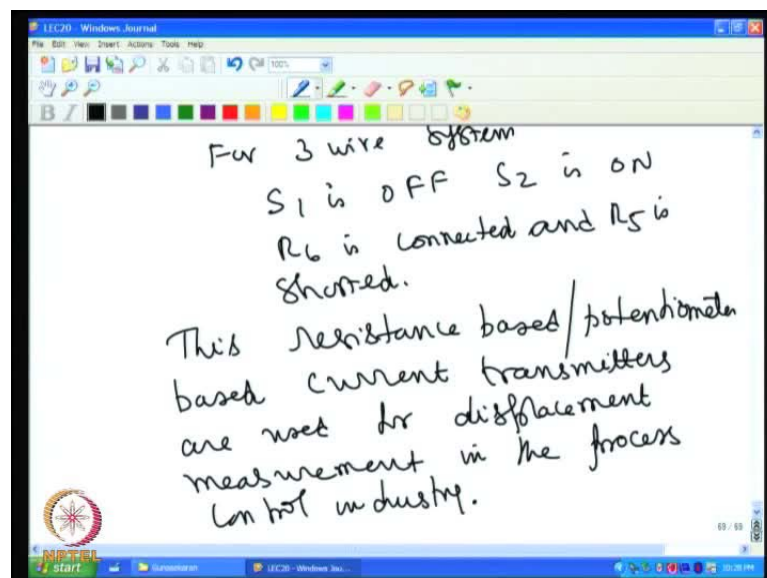 LEC20 - Windows Journal
File Edit View Insert Actions Tools Help
100%
B I
For 3 wire system
S1 is OFF S2 is ON
R6 is connected and R5 is
shorted.
This resistance based/potentiometer
based current transmitters
are used for displacement
measurement in the process
control industry.
69 / 69
NPTEL
start Gunasekaran LEC20 - Windows Jou... 10:28 PM